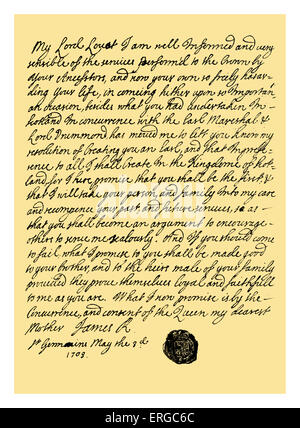 My Lord Lovat I am well Informed and very
sensible of the services perform'd to the Crown by
your Ancestors, and now your own so freely hasar-
ding your life, in comeing hither upon so Importan
ak ocasion, besides what you had undertaken In
Scotland In concurrence with the Earl Mareshal &
Lord Drummond has moved me to lett you know my
resolution of Creating you an Earl, and that In prefe-
rence to all I shall Create In the Kingdome of Scot-
land, for I här promise that you shall be the first &
that I will take your person and family Into my care
and recompence your past and future services, so as
that you shall become an argument to encourage
others to serve me zealously. And If you should come
to fail, what I promise to you shall be made good
to your brother, and to the heirs male of your family
provided they prove themselves loyal and faithfull
to me as you are. What I now promise is by the
Concurrence, and consent of the Queen my dearest
Mother James R
St Germains May the 3d
1703.
alamy
alamy stock photo
ERGC6C
www.alamy.com